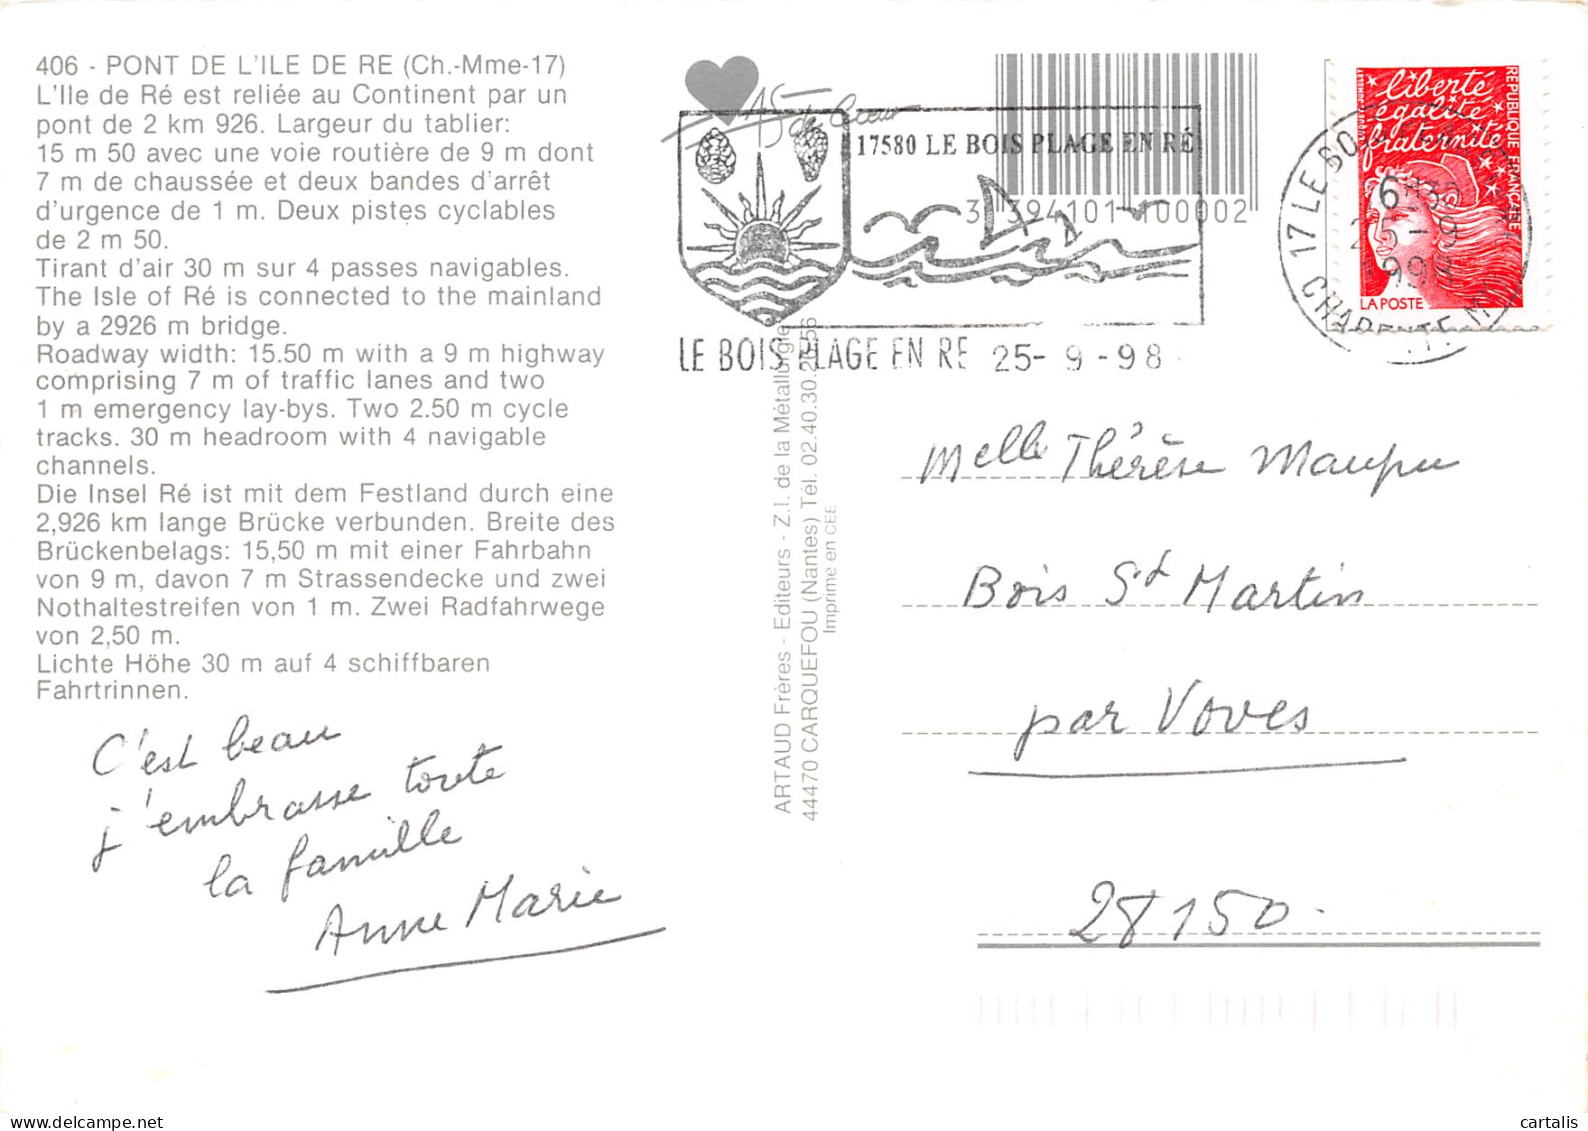 406 - PONT DE L'ILE DE RE (Ch.-Mme-17)
L'Ile de Ré est reliée au Continent par un
pont de 2 km 926. Largeur du tablier:
15 m 50 avec une voie routière de 9 m dont
7 m de chaussée et deux bandes d'arrêt
d'urgence de 1 m. Deux pistes cyclables
de 2 m 50.
Tirant d'air 30 m sur 4 passes navigables.
The Isle of Ré is connected to the mainland
by a 2926 m bridge.
Roadway width: 15.50 m with a 9 m highway
comprising 7 m of traffic lanes and two
1 m emergency lay-bys. Two 2.50 m cycle
tracks. 30 m headroom with 4 navigable
channels.
Die Insel Ré ist mit dem Festland durch eine
2,926 km lange Brücke verbunden. Breite des
Brückenbelags: 15,50 m mit einer Fahrbahn
von 9 m, davon 7 m Strassendecke und zwei
Nothaltestreifen von 1 m. Zwei Radfahrwege
von 2,50 m.
Lichte Höhe 30 m auf 4 schiffbaren
Fahrtrinnen.
C'est beau
j'embrasse toute
la famille
Anne Marie
ARTAUD Frères - Editeurs - Z.I. de la Métallurgie
44470 CARQUEFOU (Nantes) Tél. 02.40.30.
Imprimé en CEE
17580 LE BOIS PLAGE EN RÉ
3 394101 100002
LE BOIS PLAGE EN RE 25-9-98
liberté
égalité
fraternité
REPUBLIQUE FRANÇAISE
LA POSTE
17 LE BO
CHARENTE M
Melle Thérèse Maupu
Bois St Martin
par Voves
28150.
cartalis.com